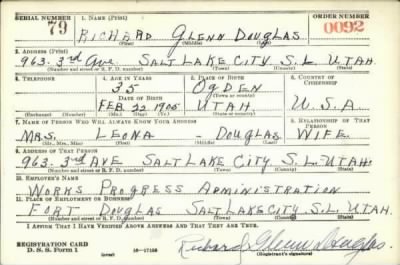 SERIAL NUMBER 1. NAME (Print) ORDER NUMBER
79 RICHARD GLENN DOUGLAS 0092
(First) (Middle) (Last)
2. ADDRESS (Print)
963. 3rd AVE. SALT LAKE CITY S.L. UTAH
(Number and street or R. F. D. number) (Town) (County) (State)
3. TELEPHONE 4. AGE IN YEARS 5. PLACE OF BIRTH 6. COUNTRY OF CITIZENSHIP
35 OGDEN
DATE OF BIRTH (Town or county)
FEB. 22 1905 UTAH U.S.A.
(Exchange) (Number) (Mo.) (Day) (Yr.) (State or country)
7. NAME OF PERSON WHO WILL ALWAYS KNOW YOUR ADDRESS 8. RELATIONSHIP OF THAT PERSON
MRS. LEONA - DOUGLAS WIFE
(Mr., Mrs., Miss) (First) (Middle) (Last)
9. ADDRESS OF THAT PERSON
963. 3rd AVE SALT LAKE CITY. S.L. UTAH
(Number and street or R. F. D. number) (Town) (County) (State)
10. EMPLOYER'S NAME
WORKS PROGRESS ADMINISTRATION
11. PLACE OF EMPLOYMENT OR BUSINESS
FORT DOUGLAS SALT LAKE CITY S.L. UTAH.
(Number and street or R. F. D. number) (Town) (County) (State)
I AFFIRM THAT I HAVE VERIFIED ABOVE ANSWERS AND THAT THEY ARE TRUE.
REGISTRATION CARD
D. S. S. Form 1 (over) 16-17105 Richard Glenn Douglas
(Registrant's signature)